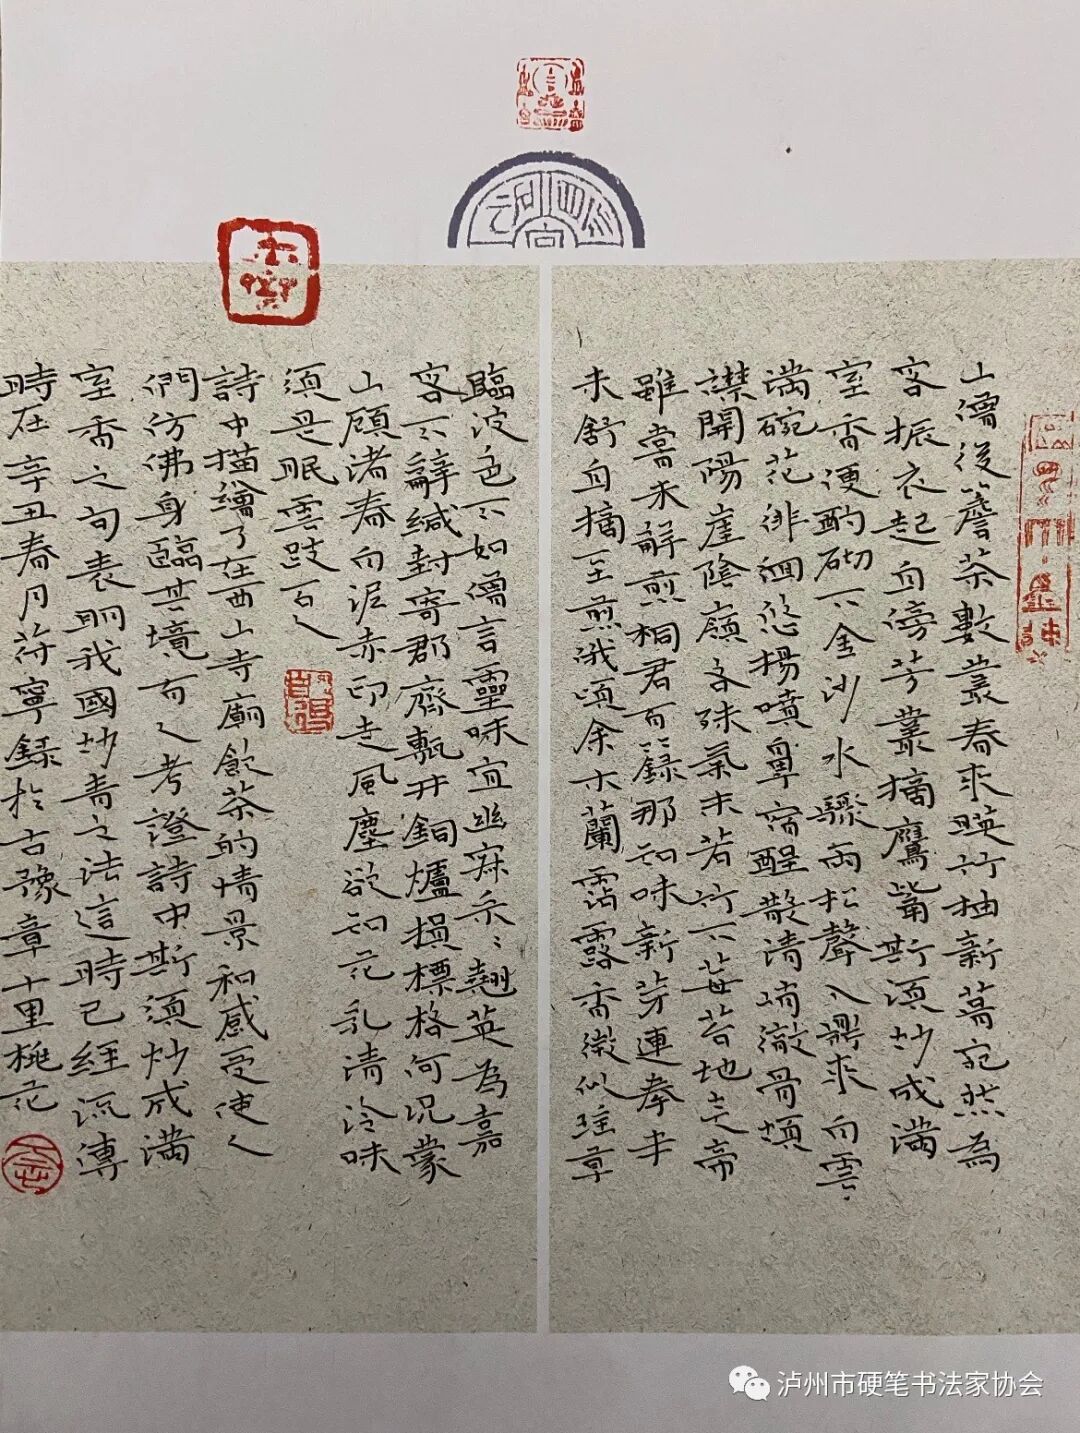 山僧後簷茶數叢春來暎竹抽新茸宛然為
客振衣起自傍芳叢摘鷹觜斯須炒成滿
室香便酌砌下金沙水驟雨松聲入鼎來白雲
滿碗花徘徊悠揚噴鼻宿酲散清峭徹骨煩
襟開陽崖陰嶺各殊氣未若竹下莓苔地炎帝
雖嘗未解煎桐君有籙那知味新芽連拳半
未舒自摘至煎俄頃余木蘭霑露香微似瑤草
臨波色不如僧言靈味宜幽寂采〻翹英為嘉
客不辭緘封寄郡齋甎井銅爐損標格何況蒙
山顧渚春白泥赤印走風塵欲知花乳清泠味
須是眠雲跂石人
詩中描繪了在西山寺廟飲茶的情景和感受使人
們彷彿身臨其境有人考證詩中斯須炒成滿
室香之句表明我國炒青之法這時已經流傳
時在辛丑春月苻寧錄於古豫章十里桃花
泸州市硬笔书法家协会